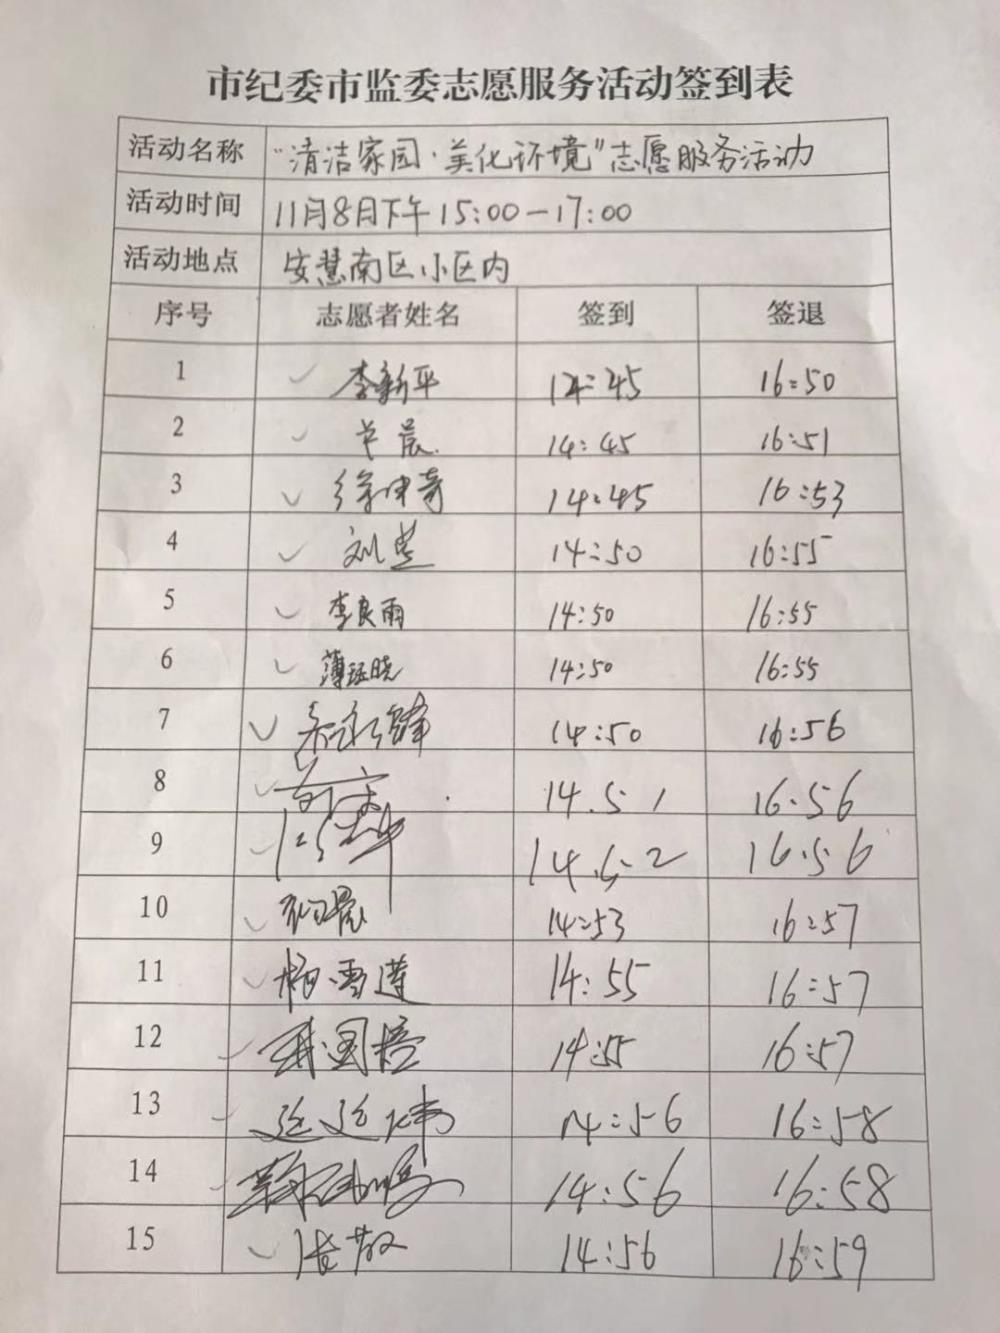 市纪委市监委志愿服务活动签到表
活动名称 "清洁家园·美化环境"志愿服务活动
活动时间 11月8月下午15:00-17:00
活动地点 安慧南区小区内
序号 志愿者姓名 签到 签退
1 李新平 14:45 16:50
2 晨 14:45 16:51
3 徐 14:45 16:53
4 刘 14:50 16:55
5 李良雨 14:50 16:55
6 薄 晓 14:50 16:55
7 锋 14:50 16:56
8 14.51 16.56
9 14.52 16.56
10 14:53 16:57
11 杨雪莲 14:55 16:57
12 国 14:55 16:57
13 14:56 16:58
14 14:56 16:58
15 14:56 16:59